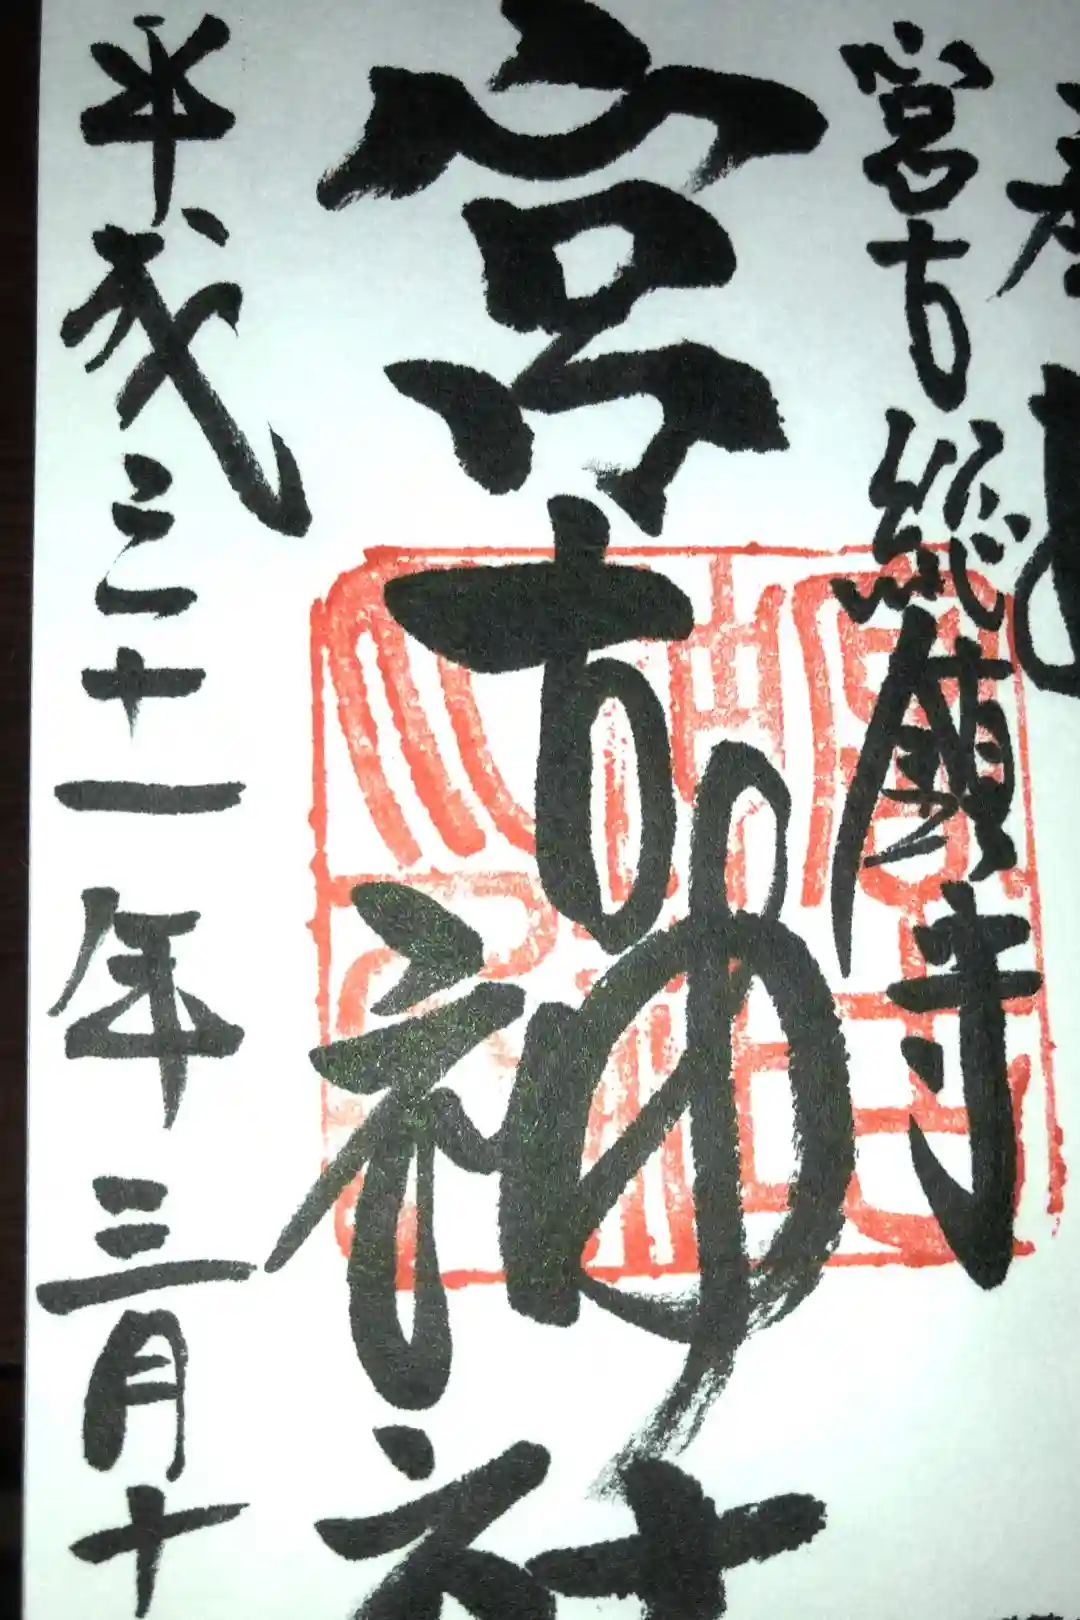 宮古総鎮守
宮古神社
平成三十一年三月十